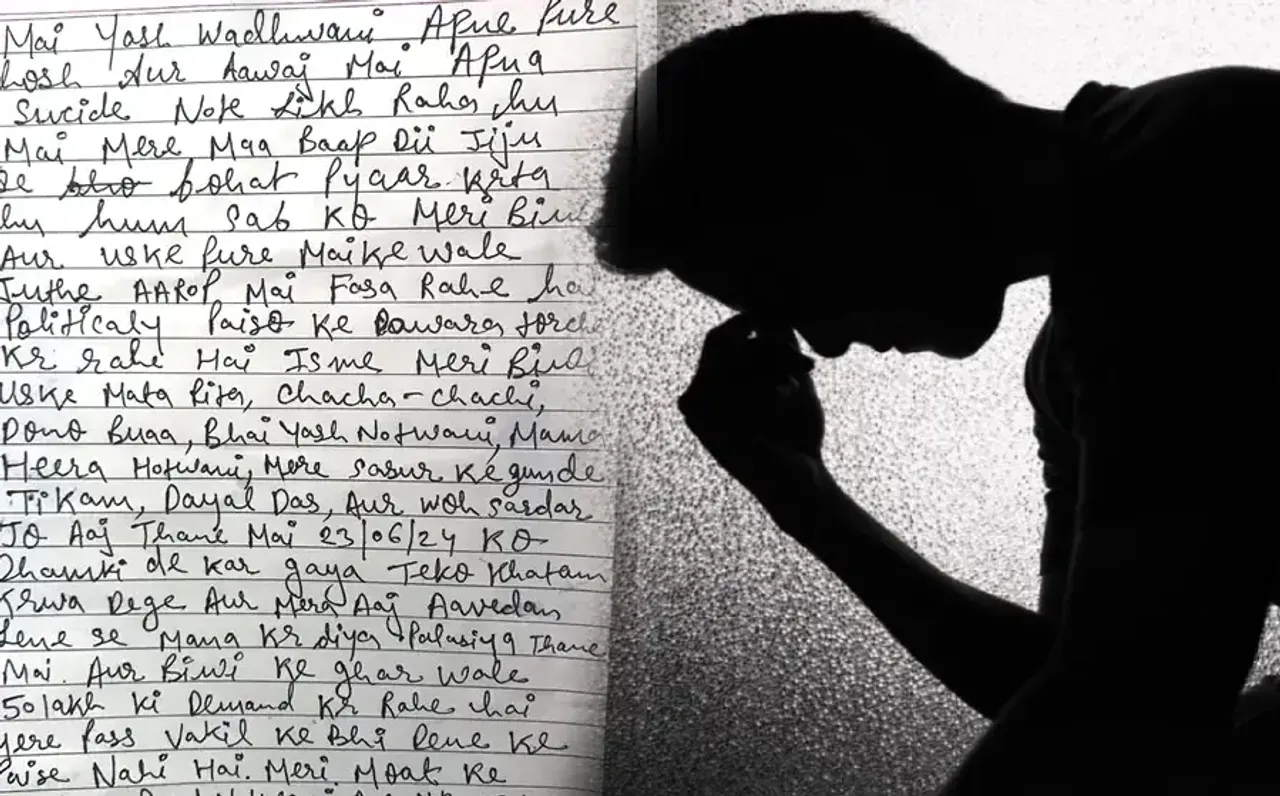 Mai Yash Wadhwani Apne Pure
hosh Aur Aawaj Mai Apna
Sucide Note Likh Raha hu
Mai Mere Maa Baap Dii Jiju
se bohat Pyaar krta
hu hum Sab KO Meri
Aur uske Pure Maike wale
Juthe AAROP Mai Fasa Rahe
Politicaly Paiso Ke Dawara
Kr rahe Hai Isme Meri
Uske Mata Pita, Chacha-Chachi,
Dono Buaa, Bhai Yash Notwani, Mama
Heera Hotwani, Mere Sasur Ke gunde
Tikam, Dayal Das, Aur woh Sardar
JO Aaj Thane Mai 23/06/24 KO
Dhamki de kar gaya Teko Khatam
Krwa Dege Aur Mera Aaj Aavedan
Lene se Mana Kr diya Palasiya Thane
Mai. Aur Biwi Ke ghar wale
50 lakh Ki Demand Kr Rahe hai
Mere Pass Vakil Ke Bhi Dene Ke
Paise Nahi Hai. Meri Moat Ke